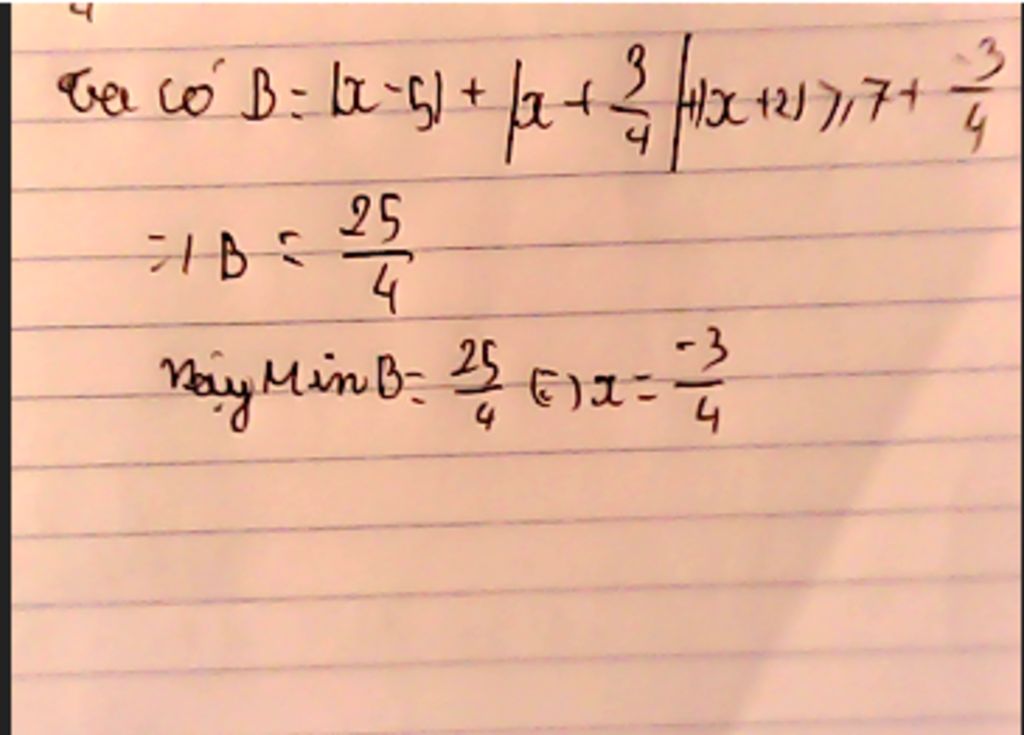 4
Ta có B = |x - 5| + |x + 3/4| + |x + 2| ≥ 7 + -3/4
=> B = 25/4
Vậy Min B = 25/4 (=) x = -3/4